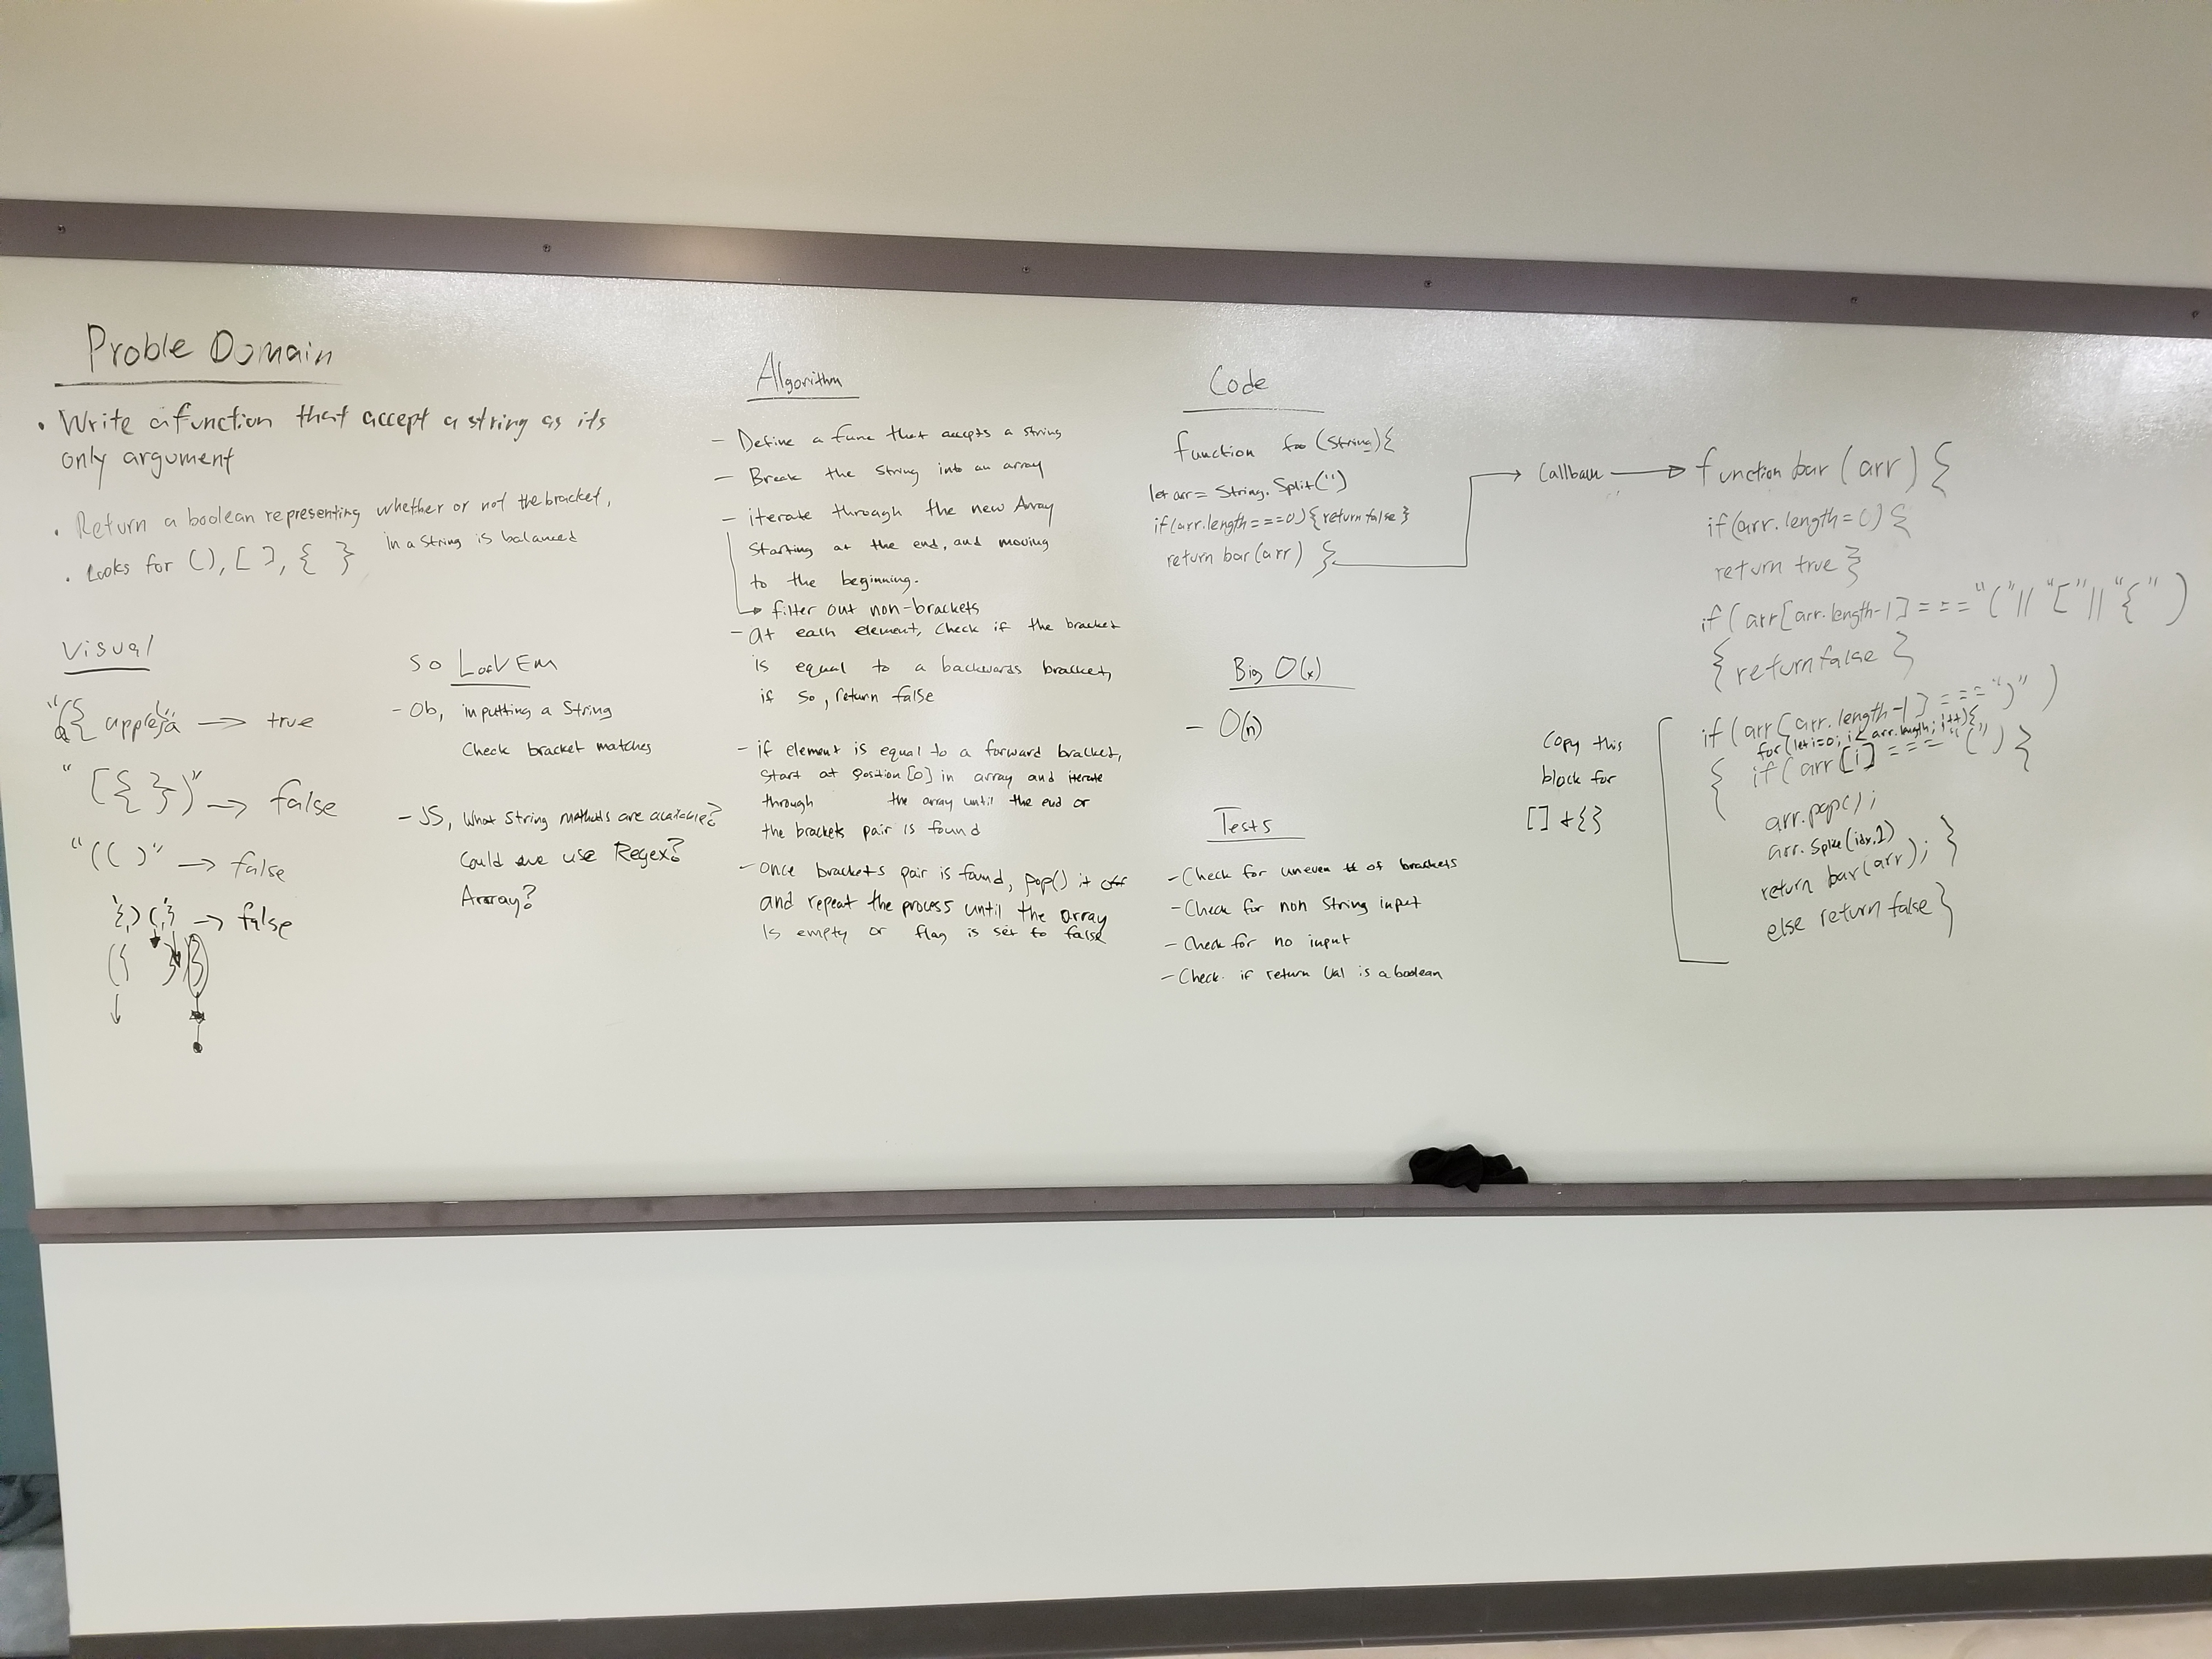 Proble Domain
• Write a function that accept a string as its
only argument
• Return a boolean representing whether or not the bracket,
in a string is balanced
• Looks for (), [ ], { }
Visual
→ true
"[{ })" → false
"(( )" → false
→ false
So LooVEm
- Ob, inputting a String
Check bracket matches
- JS, What String methods are available?
Could we use Regex?
Array?
Algorithm
- Define a func that accepts a string
- Break the string into an array
- iterate through the new Array
Starting at the end, and moving
to the beginning.
→ filter out non-brackets
- at each element, check if the bracket
is equal to a backwards bracket,
if so, return false
- if element is equal to a forward bracket,
start at position [0] in array and iterate
through the array until the end or
the brackets pair is found
- once brackets pair is found, pop() it off
and repeat the process until the array
is empty or flag is set to false
Code
function foo (String){
let arr = String.Split('')
if(arr.length===0){return false}
return bar(arr) }
Big O(x)
- O(n)
Tests
- Check for uneven # of brackets
- Check for non String input
- Check for no input
- Check if return Val is a boolean
→ Callback → function bar (arr) {
if(arr.length=0) {
return true }
if (arr[arr.length-1] === "(" || "[" || "{" )
{ return false }
if (arr[arr.length-1] === ")" )
for (let i=0; i< arr.length; i++){
{ if (arr [i] === "(") }
arr.pop();
arr.Splice(idx,1)
return bar(arr); }
else return false }
Copy this
block for
[] + {}